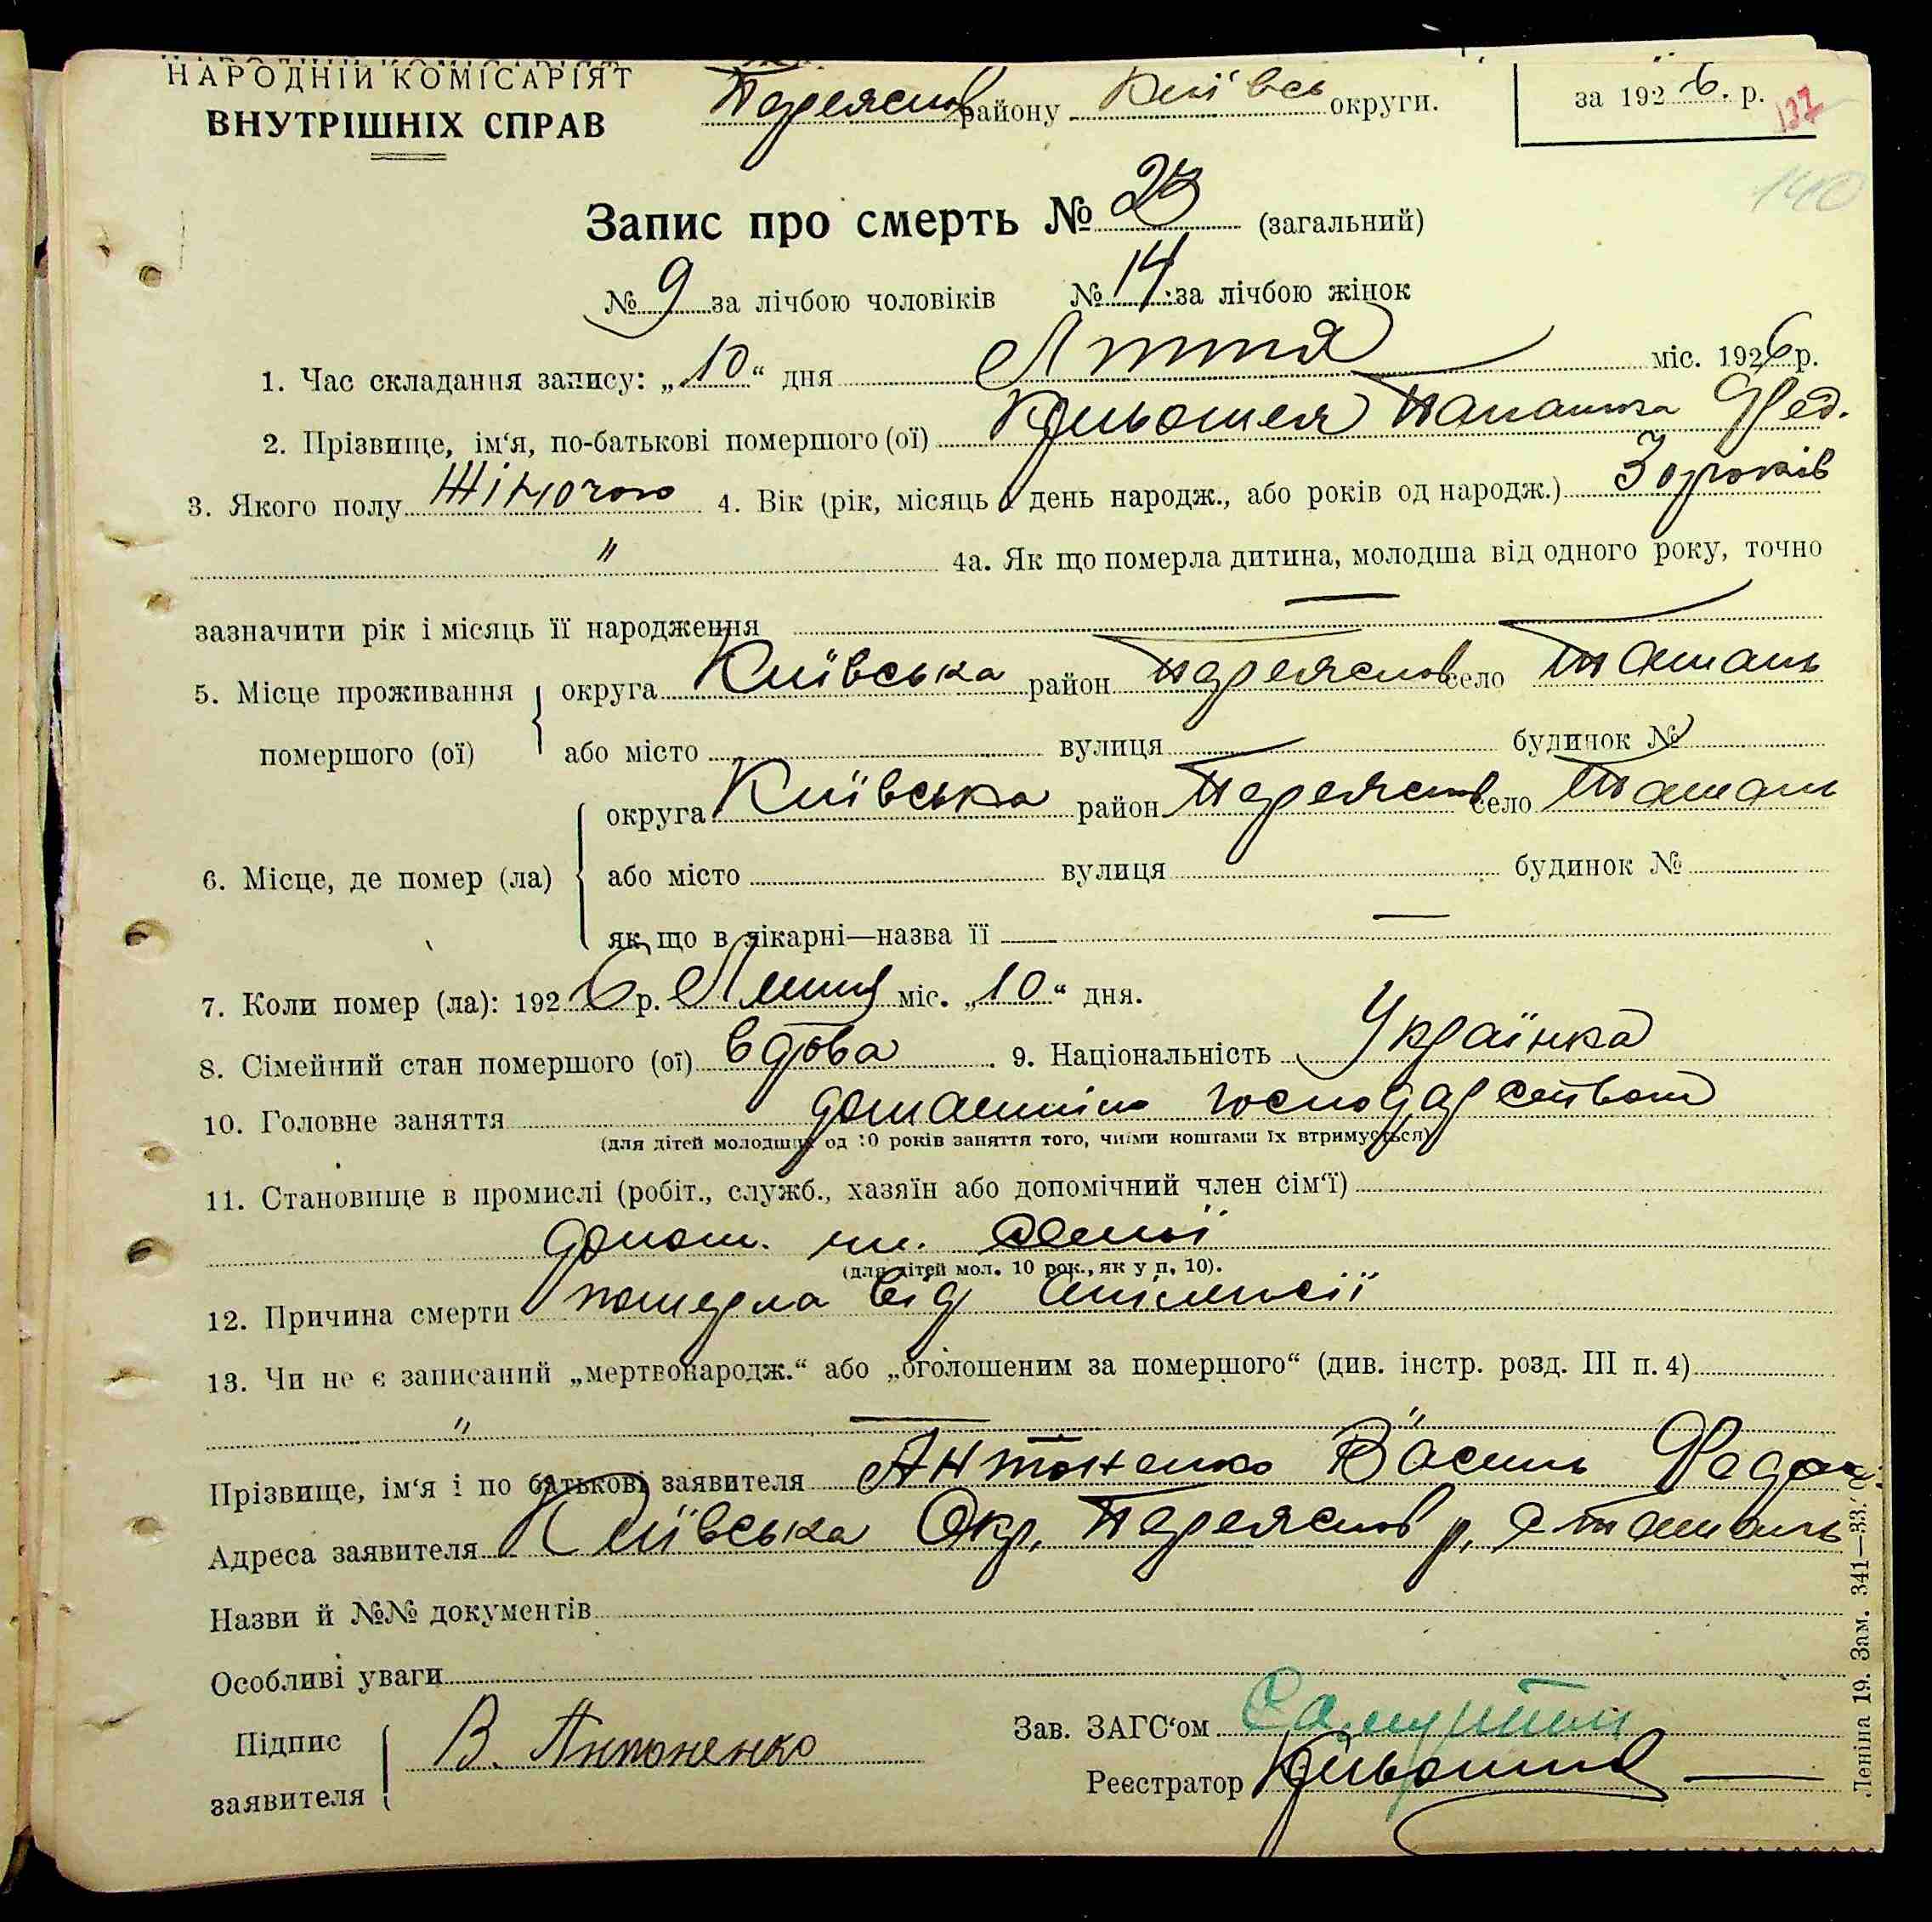 НАРОДНІЙ КОМІСАРІЯТ
ВНУТРІШНІХ СПРАВ
Переяслов району Київсь округи.
за 1926. р.
137
140
Запис про смерть № 23 (загальний)
№ 9 за лічбою чоловіків № 14. за лічбою жінок
1. Час складання запису: „10“ дня Лютня міс. 1926 р.
2. Прізвище, ім‘я, по-батькові помершого (ої) Кривошея Палажка Фед.
3. Якого полу Жіночого 4. Вік (рік, місяць і день народж., або років од народж.) 30 років
" 4а. Як що померла дитина, молодша від одного року, точно
зазначити рік і місяць її народження —
5. Місце проживання помершого (ої) округа Київська район Переяслов село Ташань
або місто вулиця — будинок №
6. Місце, де помер (ла) округа Київська район Переяслов село Ташань
або місто вулиця будинок №
як що в лікарні—назва її —
7. Коли помер (ла): 1926 р. міс. „10“ дня.
8. Сімейний стан помершого (ої) вдова. 9. Національність Українка
10. Головне заняття домашнім господарством
(для дітей молодших од 10 років заняття того, чиїми коштами їх втримується)
11. Становище в промислі (робіт., служб., хазяїн або допомічний член сім‘ї)
допом. чл. семьї
(для дітей мол. 10 рок., як у п. 10).
12. Причина смерти померла від епілепсії
13. Чи не є записаний „мертвонародж.“ або „оголошеним за помершого“ (див. інстр. розд. III п. 4)
" — "
Прізвище, ім‘я і по батькові заявителя Антоненко Василь Федор
Адреса заявителя Київська Окр. Переяслов р. с Ташань
Назви й №№ документів
Особливі уваги
Підпис заявителя В. Антоненко
Зав. ЗАГС‘ом
Реєстратор Кривошия —
Леніна 19. Зам. 341—33.